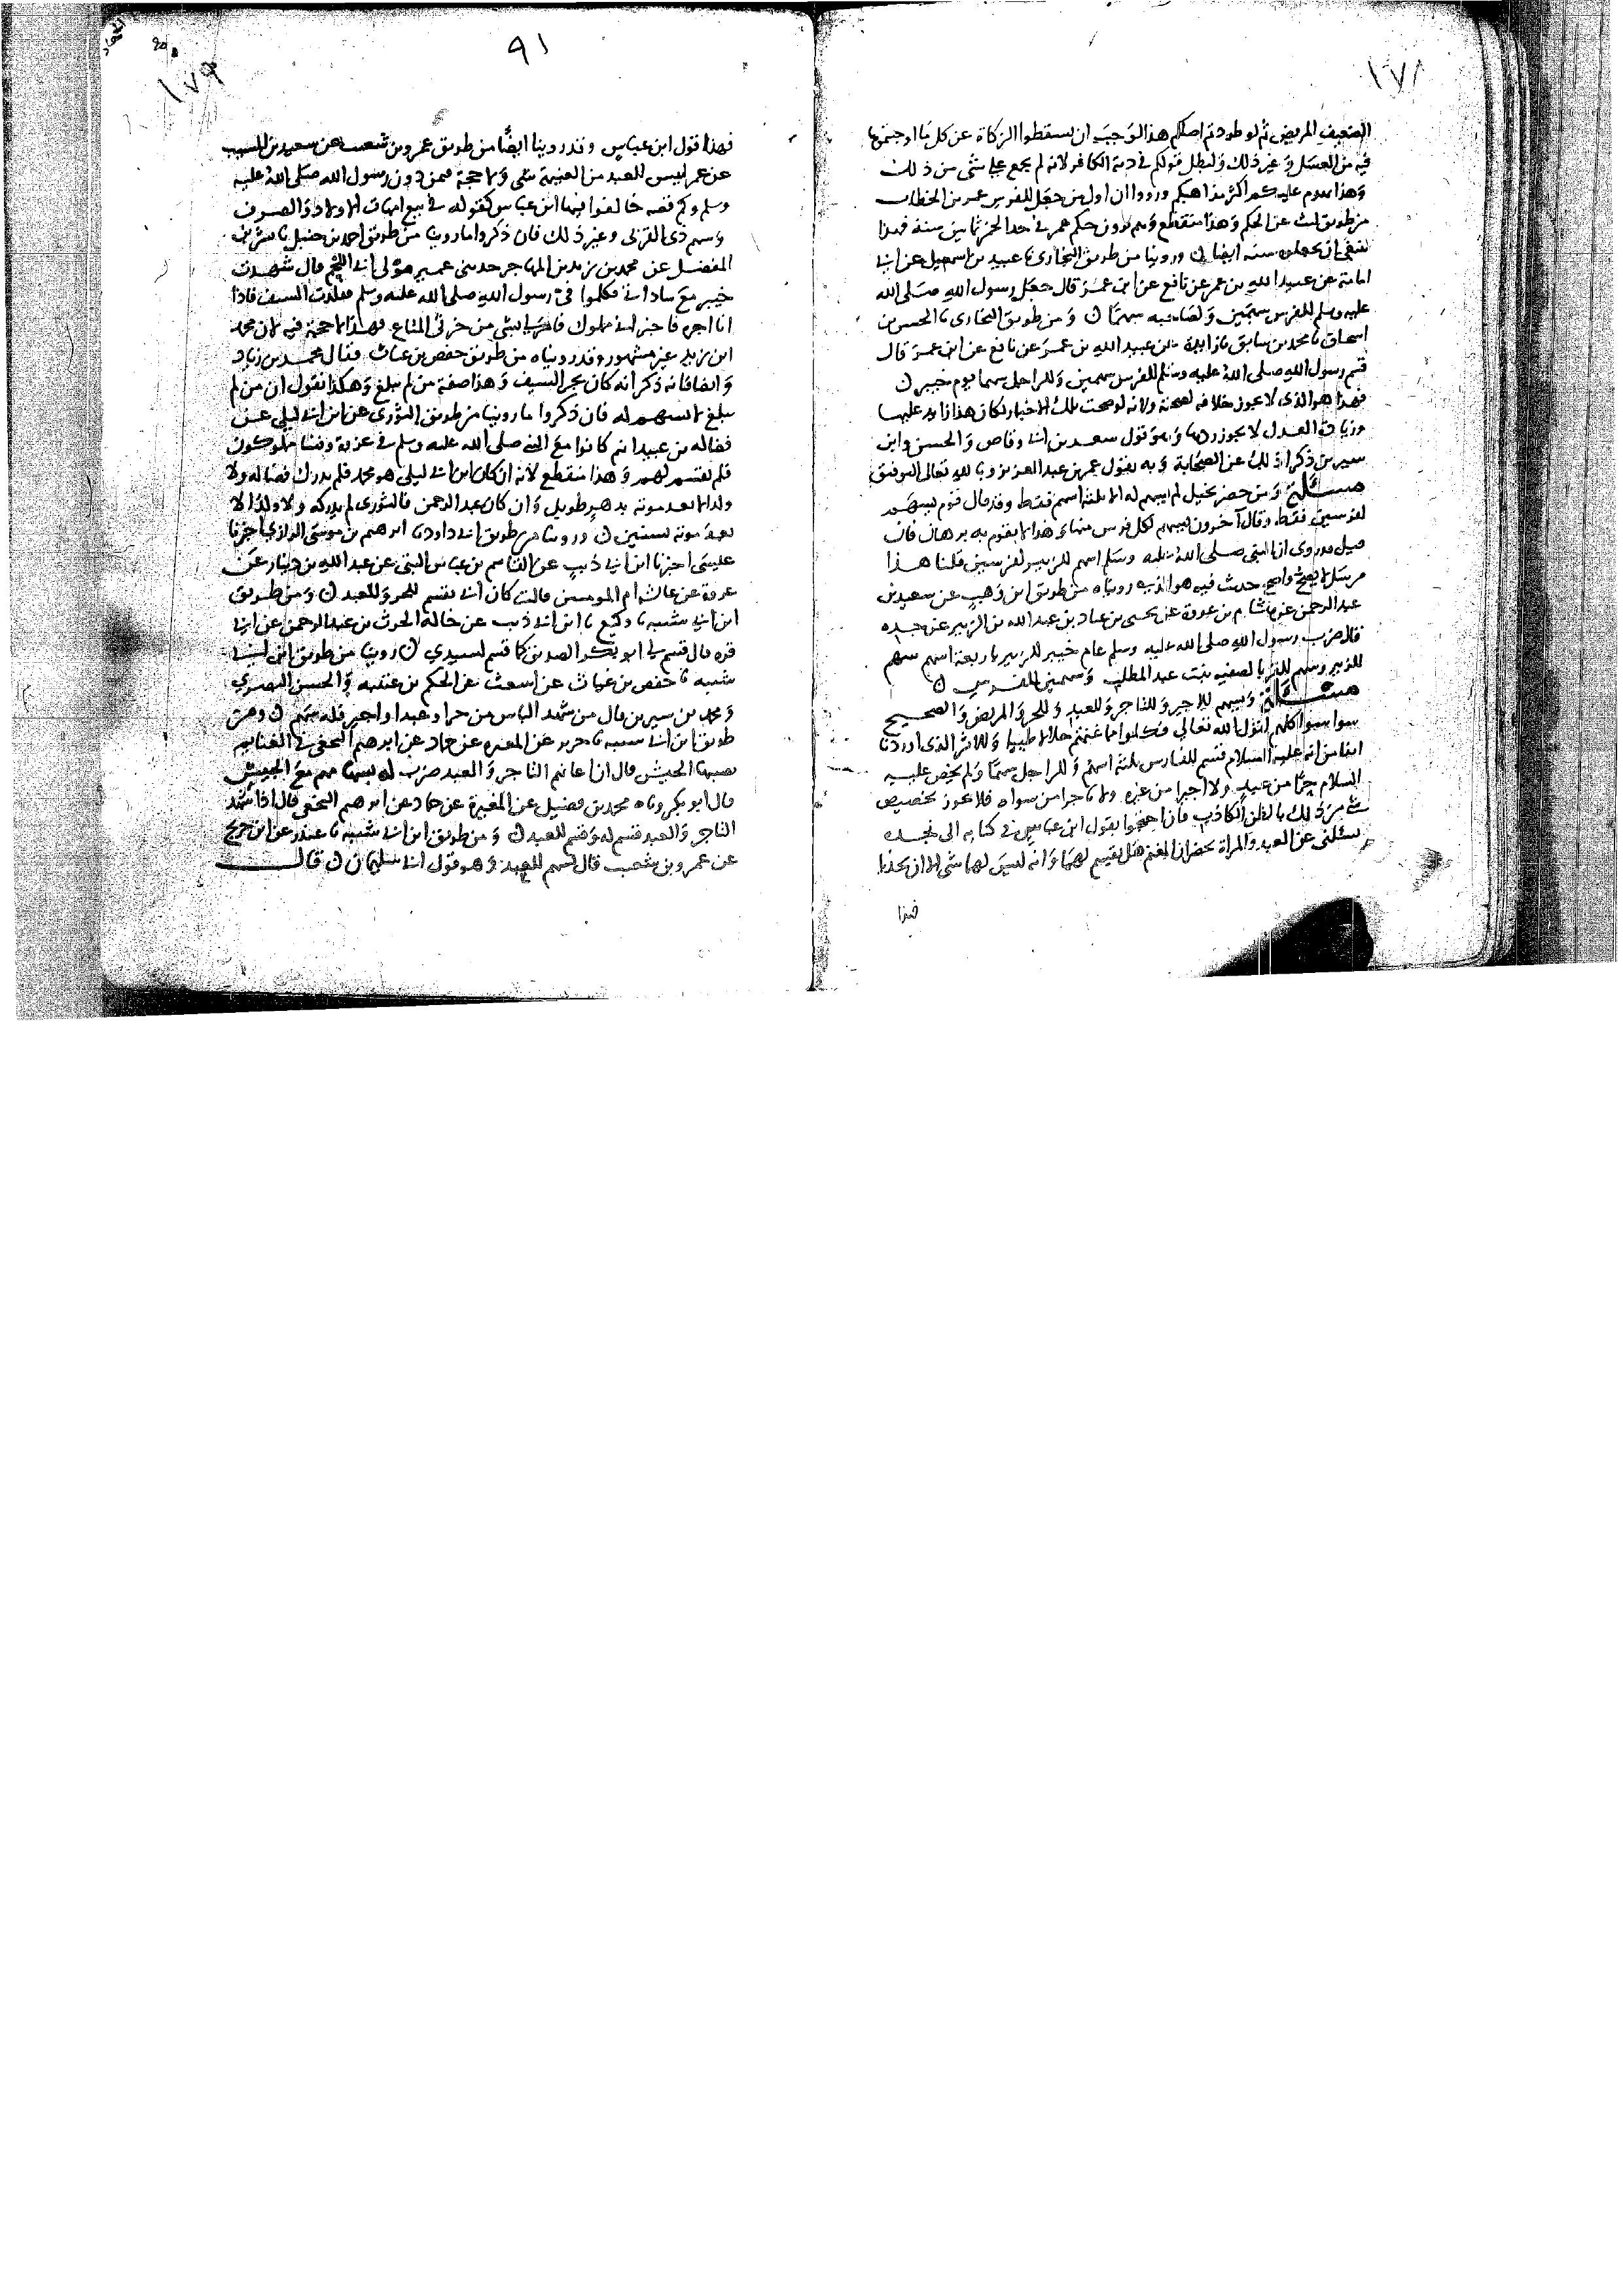 ١٧٨
الضعيف المريض ثم لو طردتم اصلكم هذا لوجب ان يسقطوا الزكاة عن كل ما اوجبتموها
فيه من العسل وغير ذلك ولبطل قولكم في دية الكافر لانه لم يجمع على شي من ذلك
وهذا يهدم عليكم اكثر مذاهبكم ورووا ان اول من جعل للفرس عمر بن الخطاب
من طريق ليث عن الحكم وهذا منقطع وهم يرون حكم عمر في حد الخمر ثمانين سنة فهذا
ينبغي ان يجعلوه سنة ايضا ن وروينا من طريق البخاري نا عبيد بن اسمعيل عن ابي
اسامة عن عبيد الله بن عمر عن نافع عن ابن عمر قال جعل رسول الله صلى الله
عليه وسلم للفرس سهمين ولصاحبه سهما ن ومن طريق البخاري نا الحسن بن
اسحاق نا محمد بن سابق نا زايدة عن عبيد الله بن عمر عن نافع عن ابن عمر قال
قسم رسول الله صلى الله عليه وسلم للفرس سهمين وللراجل سهما يوم خيبر ن
فهذا هو الذي لا يجوز خلافه لصحته ولانه لو صحت تلك الاخبار لكان هذا زايد عليها
وزيادة العدل لا يجوز ردها وهو قول سعد بن ابي وقاص والحسن وابن
سيرين ذكرا ذلك عن الصحابة وبه يقول عمر بن عبد العزيز وبالله تعالى التوفيق
مسئلة ومن حضر بخيل لم يسهم له الا ثلثة اسهم فقط وقد قال قوم يسهم
لفرسين فقط وقال آخرون يسهم لكل فرس منها وهذا لا يقوم به برهان فان
قيل قد روى ان النبي صلى الله عليه وسلم اسهم للزبير لفرسين قلنا هذا
مرسل لا يصح واصح حديث فيه هو الذي رويناه من طريق ابن وهب عن سعيد بن
عبد الرحمن عن هشام بن عروة عن يحيى بن عباد بن عبد الله بن الزبير عن جده
قال ضرب رسول الله صلى الله عليه وسلم عام خيبر للزبير باربعة اسهم سهم
للزبير وسهم للقربى لصفيه بنت عبد المطلب وسهمين للفرس ن
مسئلة ويسهم للاجير وللتاجر وللعبد وللحر والمريض والصحيح
سواسوا كلهم لقول الله تعالى فكلوا مما غنمتم حلالا طيبا وللاثر الذي اوردنا
انفا من انه عليه السلام قسم للفارس ثلثة اسهم وللراجل سهما ولم يخص عليه
السلام حرا من عبد ولا اجيرا من غيره ولا تاجرا من سواه فلا يجوز تخصيص
شي من ذلك بالظن الكاذب فان احتجوا بقول ابن عباس في كتابه الى نجده
تسئلني عن العبد والمراة يحضران المغنم هل يقسم لهما وانه ليس لهما شي الا ان يحذيا
فهذا
٩١
١٧٩
فهذا قول ابن عباس وقد روينا ايضا من طريق عمرو بن شعيب عن سعيد بن المسيب
عن عمر ليس للعبد من الغنيمة شي ولا حجة فيمن دون رسول الله صلى الله عليه
وسلم وكم قصه خالفوا فيها ابن عباس كقوله في بيع امهات الاولاد والصرف
وسهم ذي القربى وغير ذلك فان ذكروا ما روينا من طريق احمد بن حنبل نا بشر بن
المفضل عن محمد بن زيد بن المهاجر حدثني عمير مولى ابي اللحم قال شهدت
خيبر مع ساداتي فكلموا في رسول الله صلى الله عليه وسلم فقلدت السيف فاذا
انا اجره فاخبر اني مملوك فامر لي بشي من خرثي المتاع فهذا لا حجة فيه لان محمد
ابن زيد غير مشهور وقد رويناه من طريق حفص بن غياث فقال محمد بن زياد
وايضا فانه ذكر انه كان يجر السيف وهذا صفة من لم يبلغ وهكذا نقول ان من لم
يبلغ لا يسهم له فان ذكروا ما روينا من طريق الثوري عن ابن ابي ليلى عن
فضاله بن عبيد انهم كانوا مع النبي صلى الله عليه وسلم في غزوة وفينا مملوكون
فلم يقسم لهم وهذا منقطع لانه ان كان ابن ابي ليلى هو محمد فلم يدرك فضاله ولا
ولد الا بعد موته بدهر طويل وان كان عبد الرحمن فالثوري لم يدركه ولا ولد الا
بعد موته بسنتين ن وروينا من طريق ابي داود نا ابراهيم بن موسى الرازي اخبرنا
عيسى اخبرنا ابن ابي ذيب عن القاسم بن عباس عن عبد الله بن دينار عن
عروة عن عائشة ام المومنين قالت كان ابي يقسم للحر وللعبد ن ومن طريق
ابن ابي شيبه نا وكيع نا ابن ابي ذيب عن خاله الحرث بن عبد الرحمن عن ابي
قره قال قسم لي ابو بكر الصديق كما قسم لسيدي ن روينا من طريق ابن ابي
شيبه نا حفص بن غياث عن اشعث عن الحكم بن عتيبه والحسن البصري
ومحمد بن سيرين قال من شهد الباس من حر او عبد او اجير فله سهم ن ومن
طريق ابن ابي شيبه نا جرير عن المغيره عن حماد عن ابراهيم النخعي في الغنايم
يصيبها الجيش قال ان اعانهم التاجر والعبد ضرب له بسهامهم مع الجيش
قال ابو بكر وناه محمد بن فضيل عن المغيرة عن حماد عن ابراهيم النخعي قال اذا شهد
التاجر والعبد قسم له وقسم للعبد ن ومن طريق ابن ابي شيبه نا غندر عن ابن جريج
عن عمرو بن شعيب قال يسهم للعبد وهو قول ابي سليمان ن قال